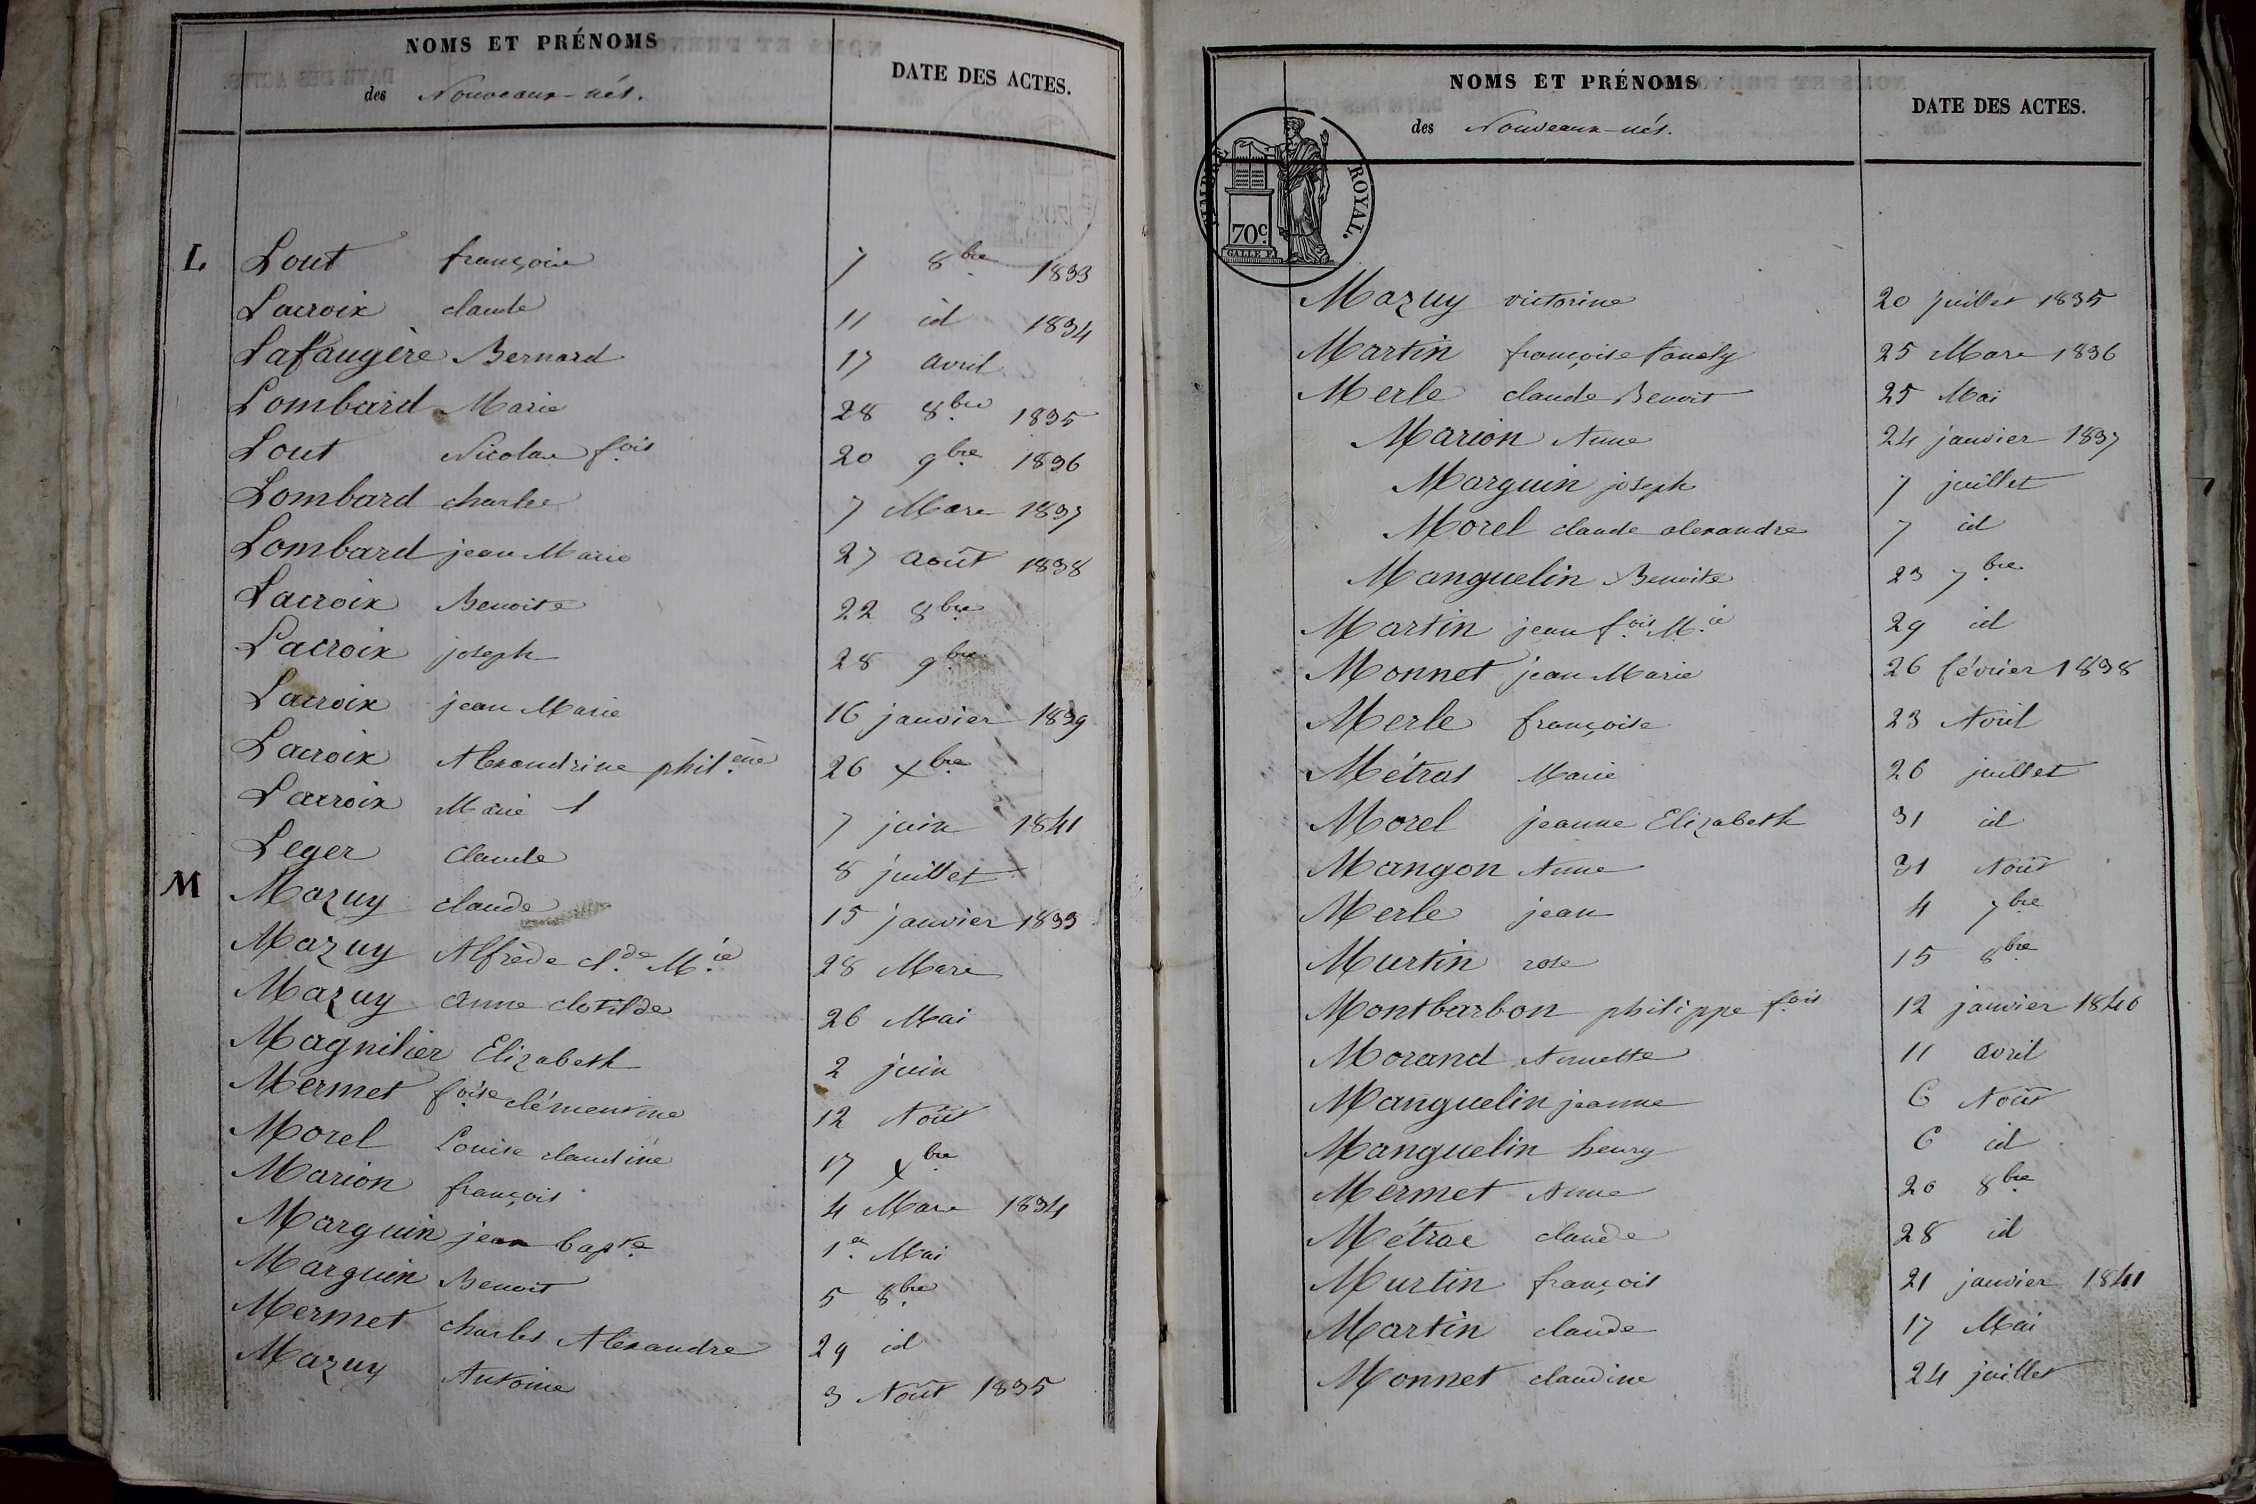 NOMS ET PRÉNOMS
des Nouveaux-nés.
DATE DES ACTES.
L Lout françoise 7 8bre 1833
Lacroix claude 11 id 1834
Lafaugère Bernard 17 avril
Lombard Marie 28 8bre 1835
Lout Nicolas fois 20 9bre 1836
Lombard charles 7 Mars 1837
Lombard jean Marie 27 août 1838
Lacroix Benoite 22 8bre
Lacroix joseph 28 9bre
Lacroix jean Marie 16 janvier 1839
Lacroix Alexandrine phil.ène 26 xbre
Lacroix Marie 1 7 juin 1841
Leger claude 8 juillet
M Mazuy claude 15 janvier 1833
Mazuy Alfrède cl.de M.ie 28 Mars
Mazuy Anne clotilde 26 Mai
Magnilier Elizabeth 2 juin
Mermet foise clémentine 12 Août
Morel Louise claudine 17 xbre
Marion françois 4 Mars 1834
Marguin jean bap.te 1.er Mai
Marguin Benoit 5 8bre
Mermet charles Alexandre 29 id
Mazuy Antoine 3 Août 1835
NOMS ET PRÉNOMS
des Nouveaux-nés.
DATE DES ACTES.
TIMBRE ROYAL.
70c.
Mazuy victorine 20 juillet 1835
Martin françoise fanély 25 Mars 1836
Merle claude Benoit 25 Mai
Marion Anne 24 janvier 1837
Marguin joseph 7 juillet
Morel claude alexandre 7 id
Manguelin Benoite 23 7bre
Martin jean fois M.ie 29 id
Monnet jean Marie 26 février 1838
Merle françoise 23 Avril
Métras Marie 26 juillet
Morel jeanne Elizabeth 31 id
Mangon Anne 31 Août
Merle jean 4 7bre
Murtin rose 15 8bre
Montbarbon philippe fois 12 janvier 1840
Morand Annette 11 avril
Manguelin jeanne 6 Août
Manguelin henry 6 id
Mermet Anne 20 8bre
Métrac claude 28 id
Murtin françois 21 janvier 1841
Martin claude 17 Mai
Monnet claudine 24 juillet